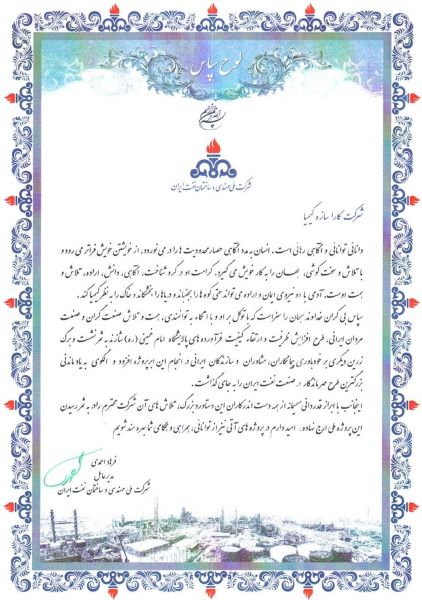 لوح سپاس
شرکت ملی مهندسی و ساختمان نفت ایران
شرکت کارا سازه کیمیا
دانائی توانائی و آگاهی رهائی است. انسان به مدد آگاهی حصار محدودیت ها را در می نوردد، از خویشتن خویش فراتر می رود و
با تلاش و سخت کوشی، جهان را به کار خویش می گیرد. کرامت او در گرو شناخت، آگاهی، دانش، اراده، تلاش و
همت اوست. آدمی با دو نیروی ایمان و اراده می تواند حتی کوه ها را بجنباند و دریاها را بخشکاند و خاک را به نظر کیمیا کند.
سپاس بی کران خداوند سبحان را سزاست که با توکل بر او و با تکیه به توانمندی، همت و تلاش صنعت گران و صنعت
مردان ایرانی، طرح افزایش ظرفیت و ارتقاء کیفیت فرآورده های پالایشگاه امام خمینی (ره) شازند به ثمر نشست و برگ
زرین دیگری بر خودباوری پیمانکاران، مشاوران و سازندگان ایرانی در انجام این ابرپروژه افزود و الگوی به یاد ماندنی
بزرگترین طرح مهر ماندگار در صنعت نفت ایران را به جای گذاشت.
اینجانب با ابراز قدردانی صمیمانه از همه دست اندرکاران این دستاورد بزرگ، تلاش های آن شرکت محترم را در به ثمر رسیدن
این پروژه ملی ارج نهاده، امید دارم در پروژه های آتی نیز از توانائی، همراهی و همگامی شما بهره مند شویم
فرهاد احمدی
مدیرعامل
شرکت ملی مهندسی و ساختمان نفت ایران